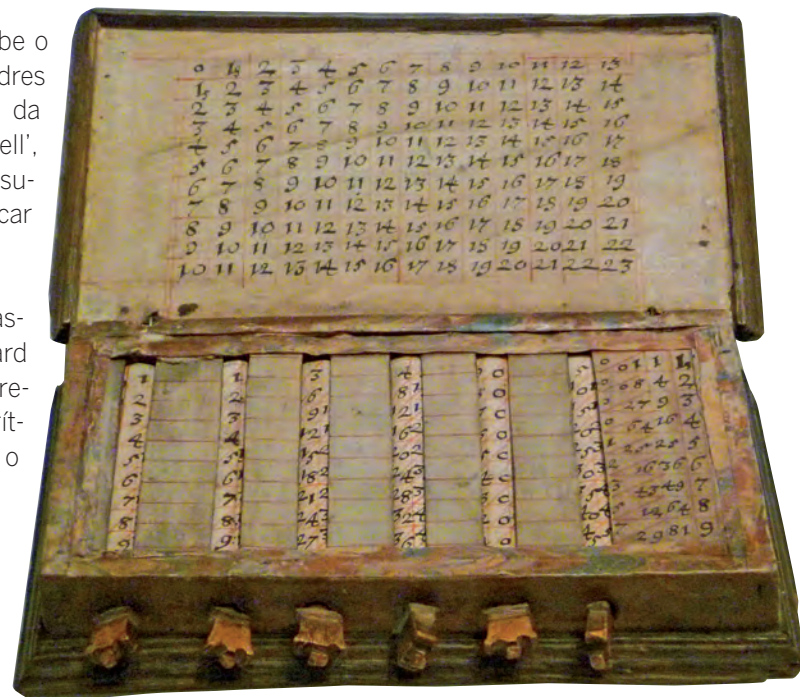 be o
dres
da
ell',
su-
car
as-
ard
re-
ít-
o
0 1 2 3 4 5 6 7 8 9 10 11 12 13
1 2 3 4 5 6 7 8 9 10 11 12 13 14
2 3 4 5 6 7 8 9 10 11 12 13 14 15
3 4 5 6 7 8 9 10 11 12 13 14 15 16
4 5 6 7 8 9 10 11 12 13 14 15 16 17
5 6 7 8 9 10 11 12 13 14 15 16 17 18
6 7 8 9 10 11 12 13 14 15 16 17 18 19
7 8 9 10 11 12 13 14 15 16 17 18 19 20
8 9 10 11 12 13 14 15 16 17 18 19 20 21
9 10 11 12 13 14 15 16 17 18 19 20 21 22
10 11 12 13 14 15 16 17 18 19 20 21 22 23
1 1 3 4 0 0 1 1 1
2 2 6 8 0 0 8 4 2
3 3 9 0 27 9 3
4 4 0 64 16 4
5 5 0 25 25 5
6 6 0 16 36 6
7 7 0 43 49 7
8 8 0 12 64 8
9 9 0 29 81 9